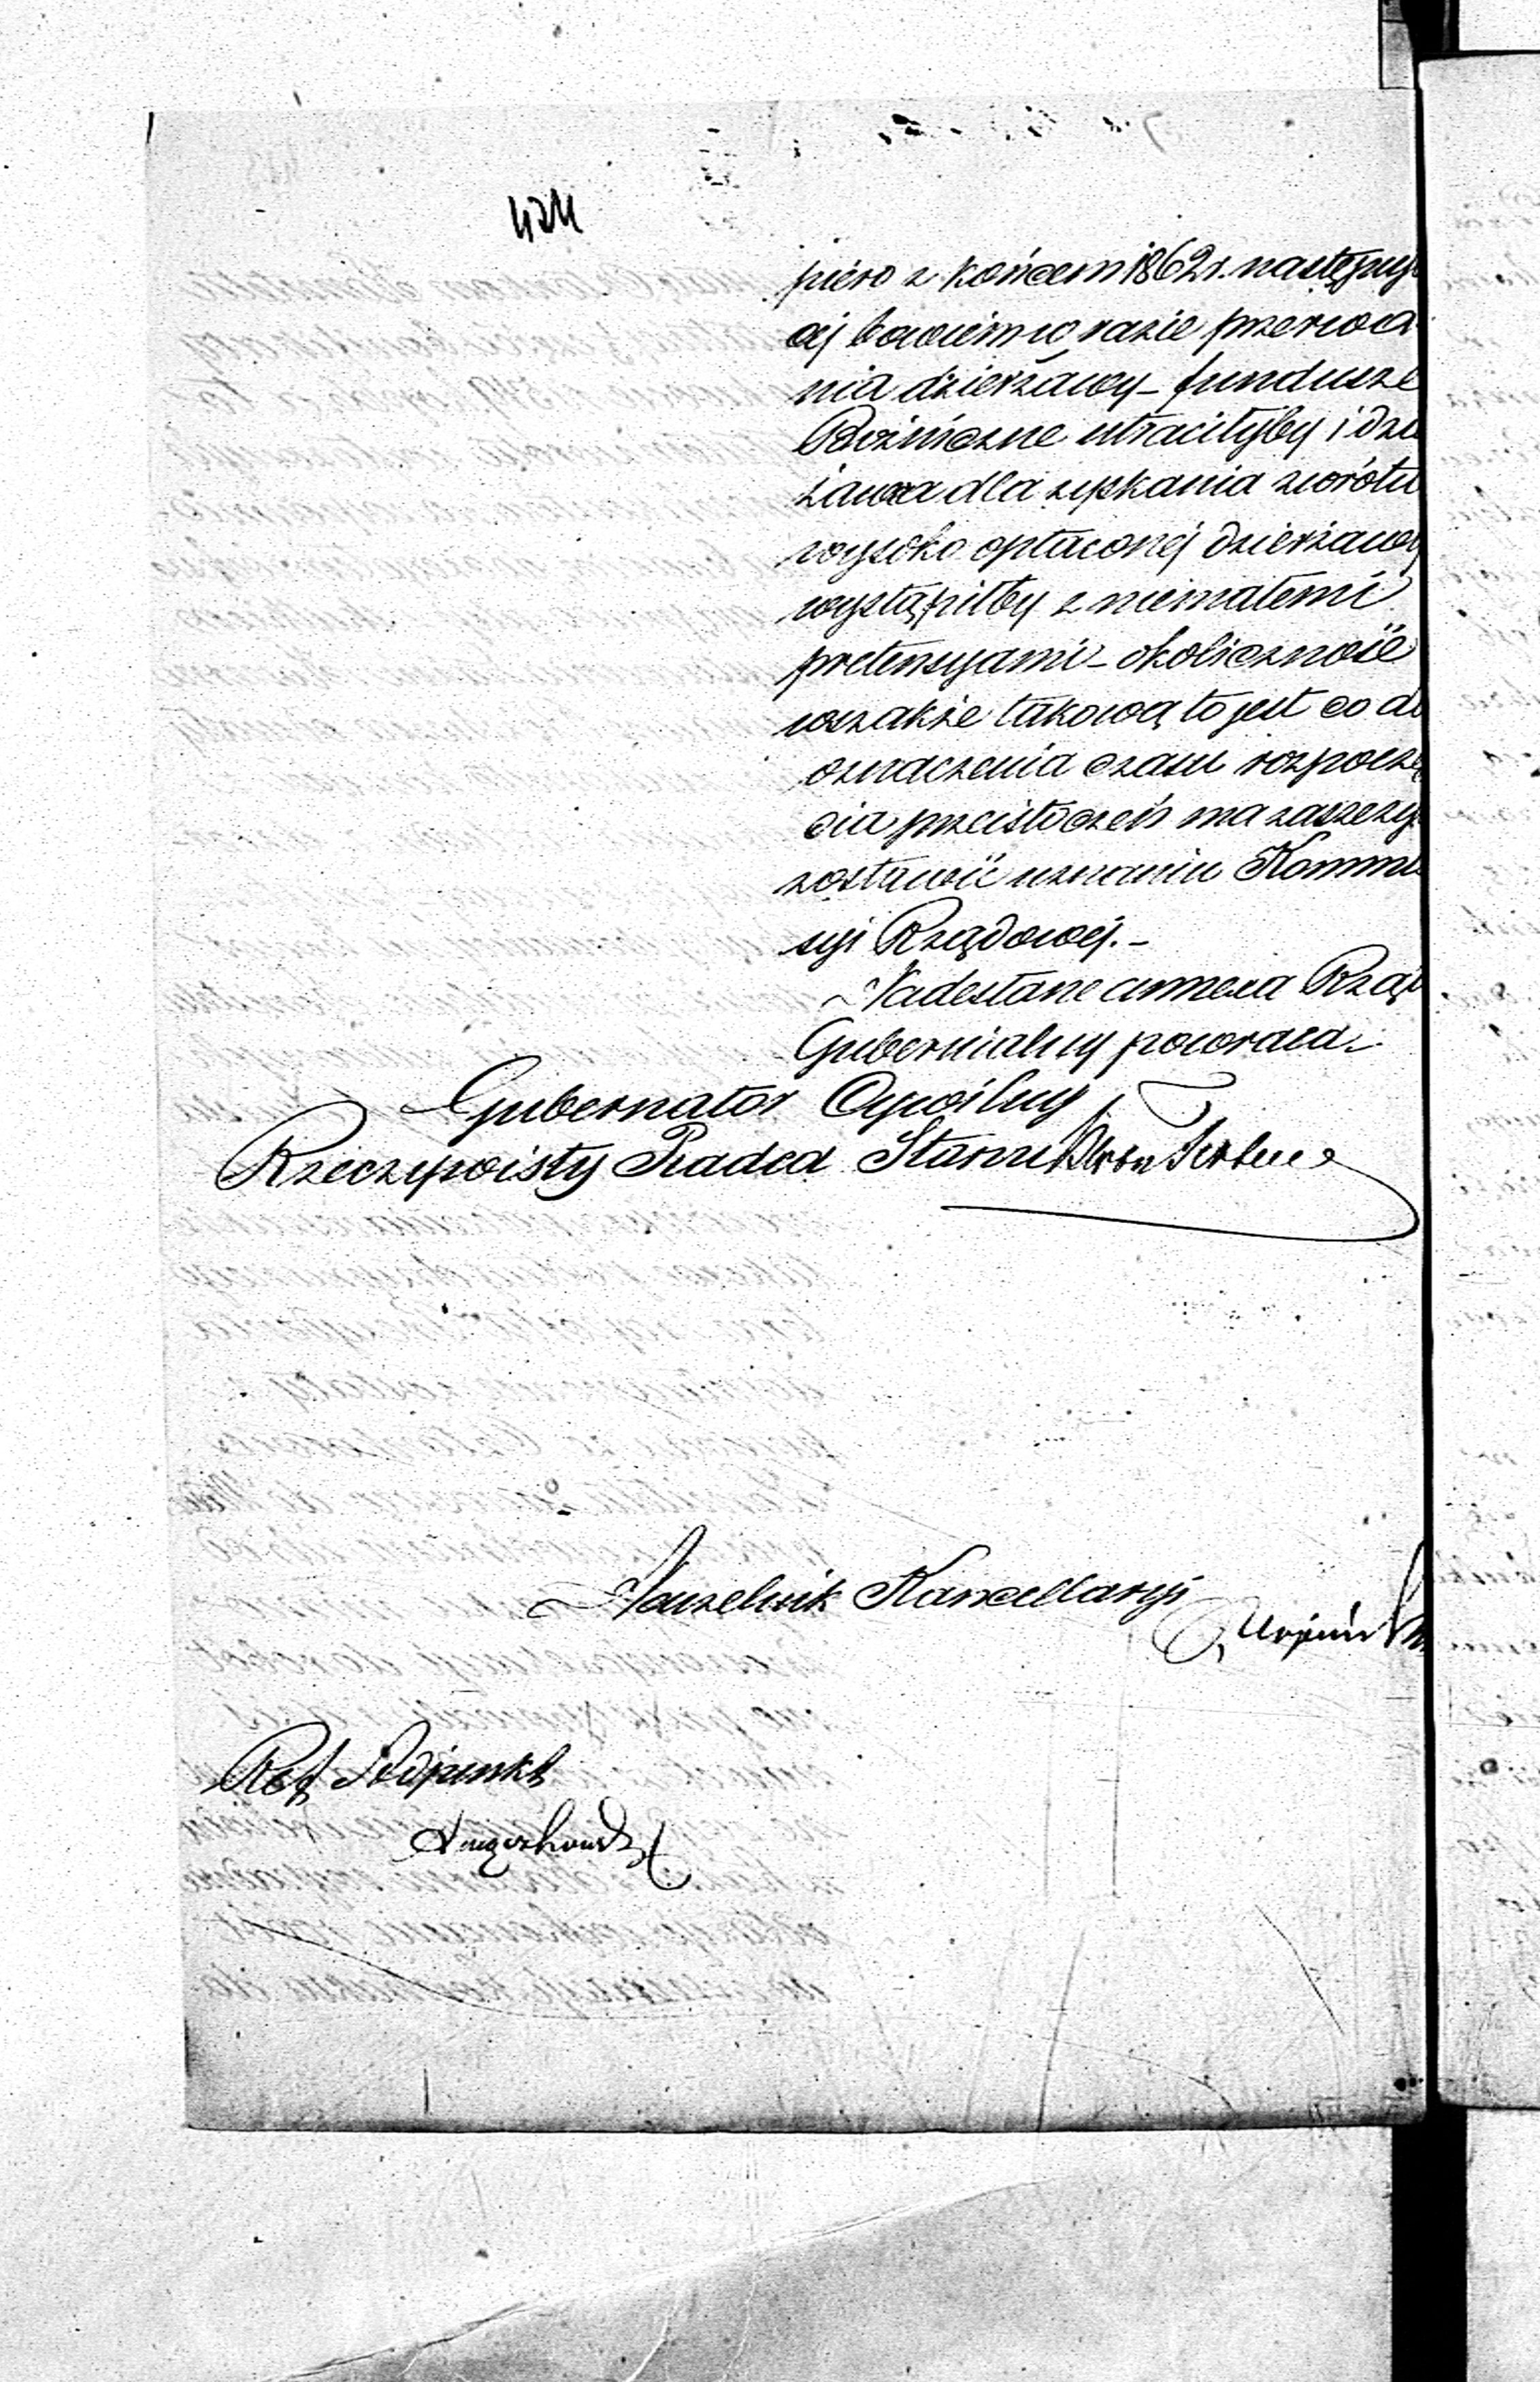 424
piero z końcem 1862 r. następuj
cej bowiem w razie przerwa
nia dzierżawy – fundusze
Bożniczne utraciłyby i dzie
żawca dla zyskania zwrotu
wysoko opłaconej dzierżawy
wystąpiłby z niemałemi
pretensyami – okoliczność
wszakże takową to jest co do
oznaczenia czasu rozpoczę
cia przeistoczeń ma zaszczy
zostawić uznaniu Kommi
syi Rządowej. –
Nadesłane annexa Rząd
Gubernialny powraca.
Gubernator Cywilny
Rzeczywisty Radca Stanu
Naczelnik Kancellaryi
Ref Adjunkt